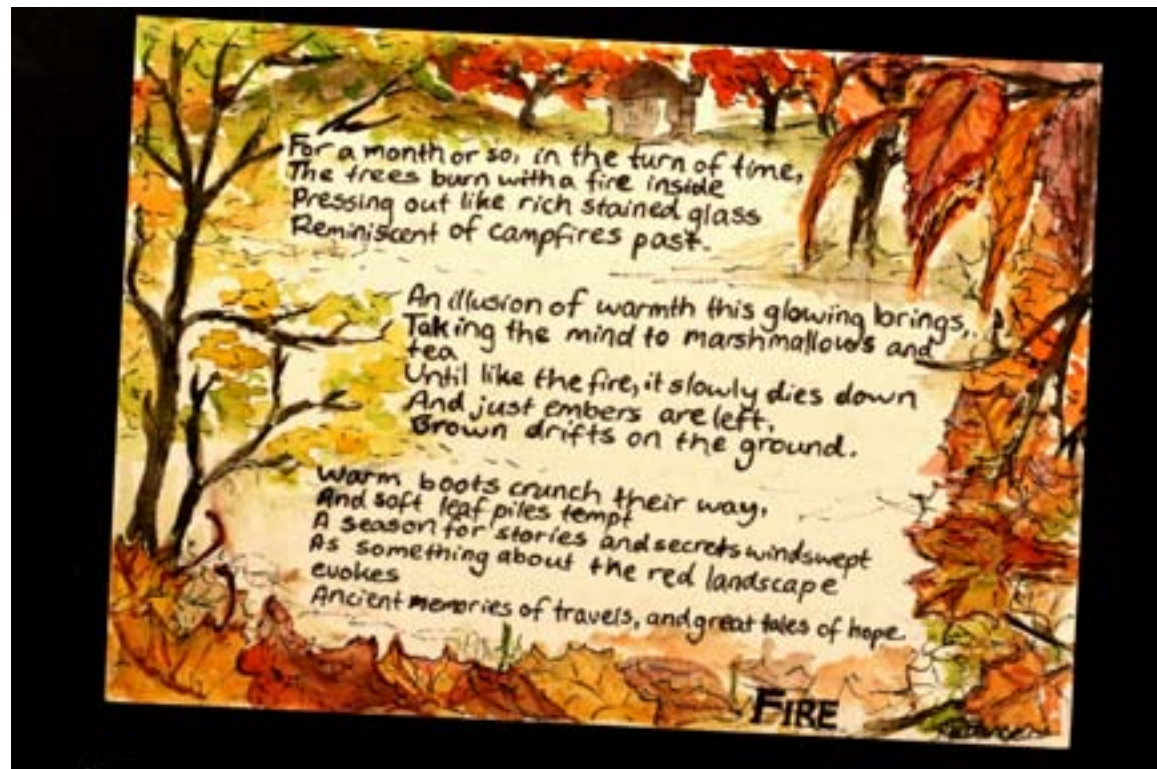 For a month or so, in the turn of time,
The trees burn with a fire inside
Pressing out like rich stained glass
Reminiscent of campfires past.
An illusion of warmth this glowing brings,
Taking the mind to marshmallows and
tea
Until like the fire, it slowly dies down
And just embers are left,
Brown drifts on the ground.
Warm boots crunch their way,
And soft leaf piles tempt
A season for stories and secrets windswept
As something about the red landscape
evokes
Ancient memories of travels, and great tales of hope
FIRE